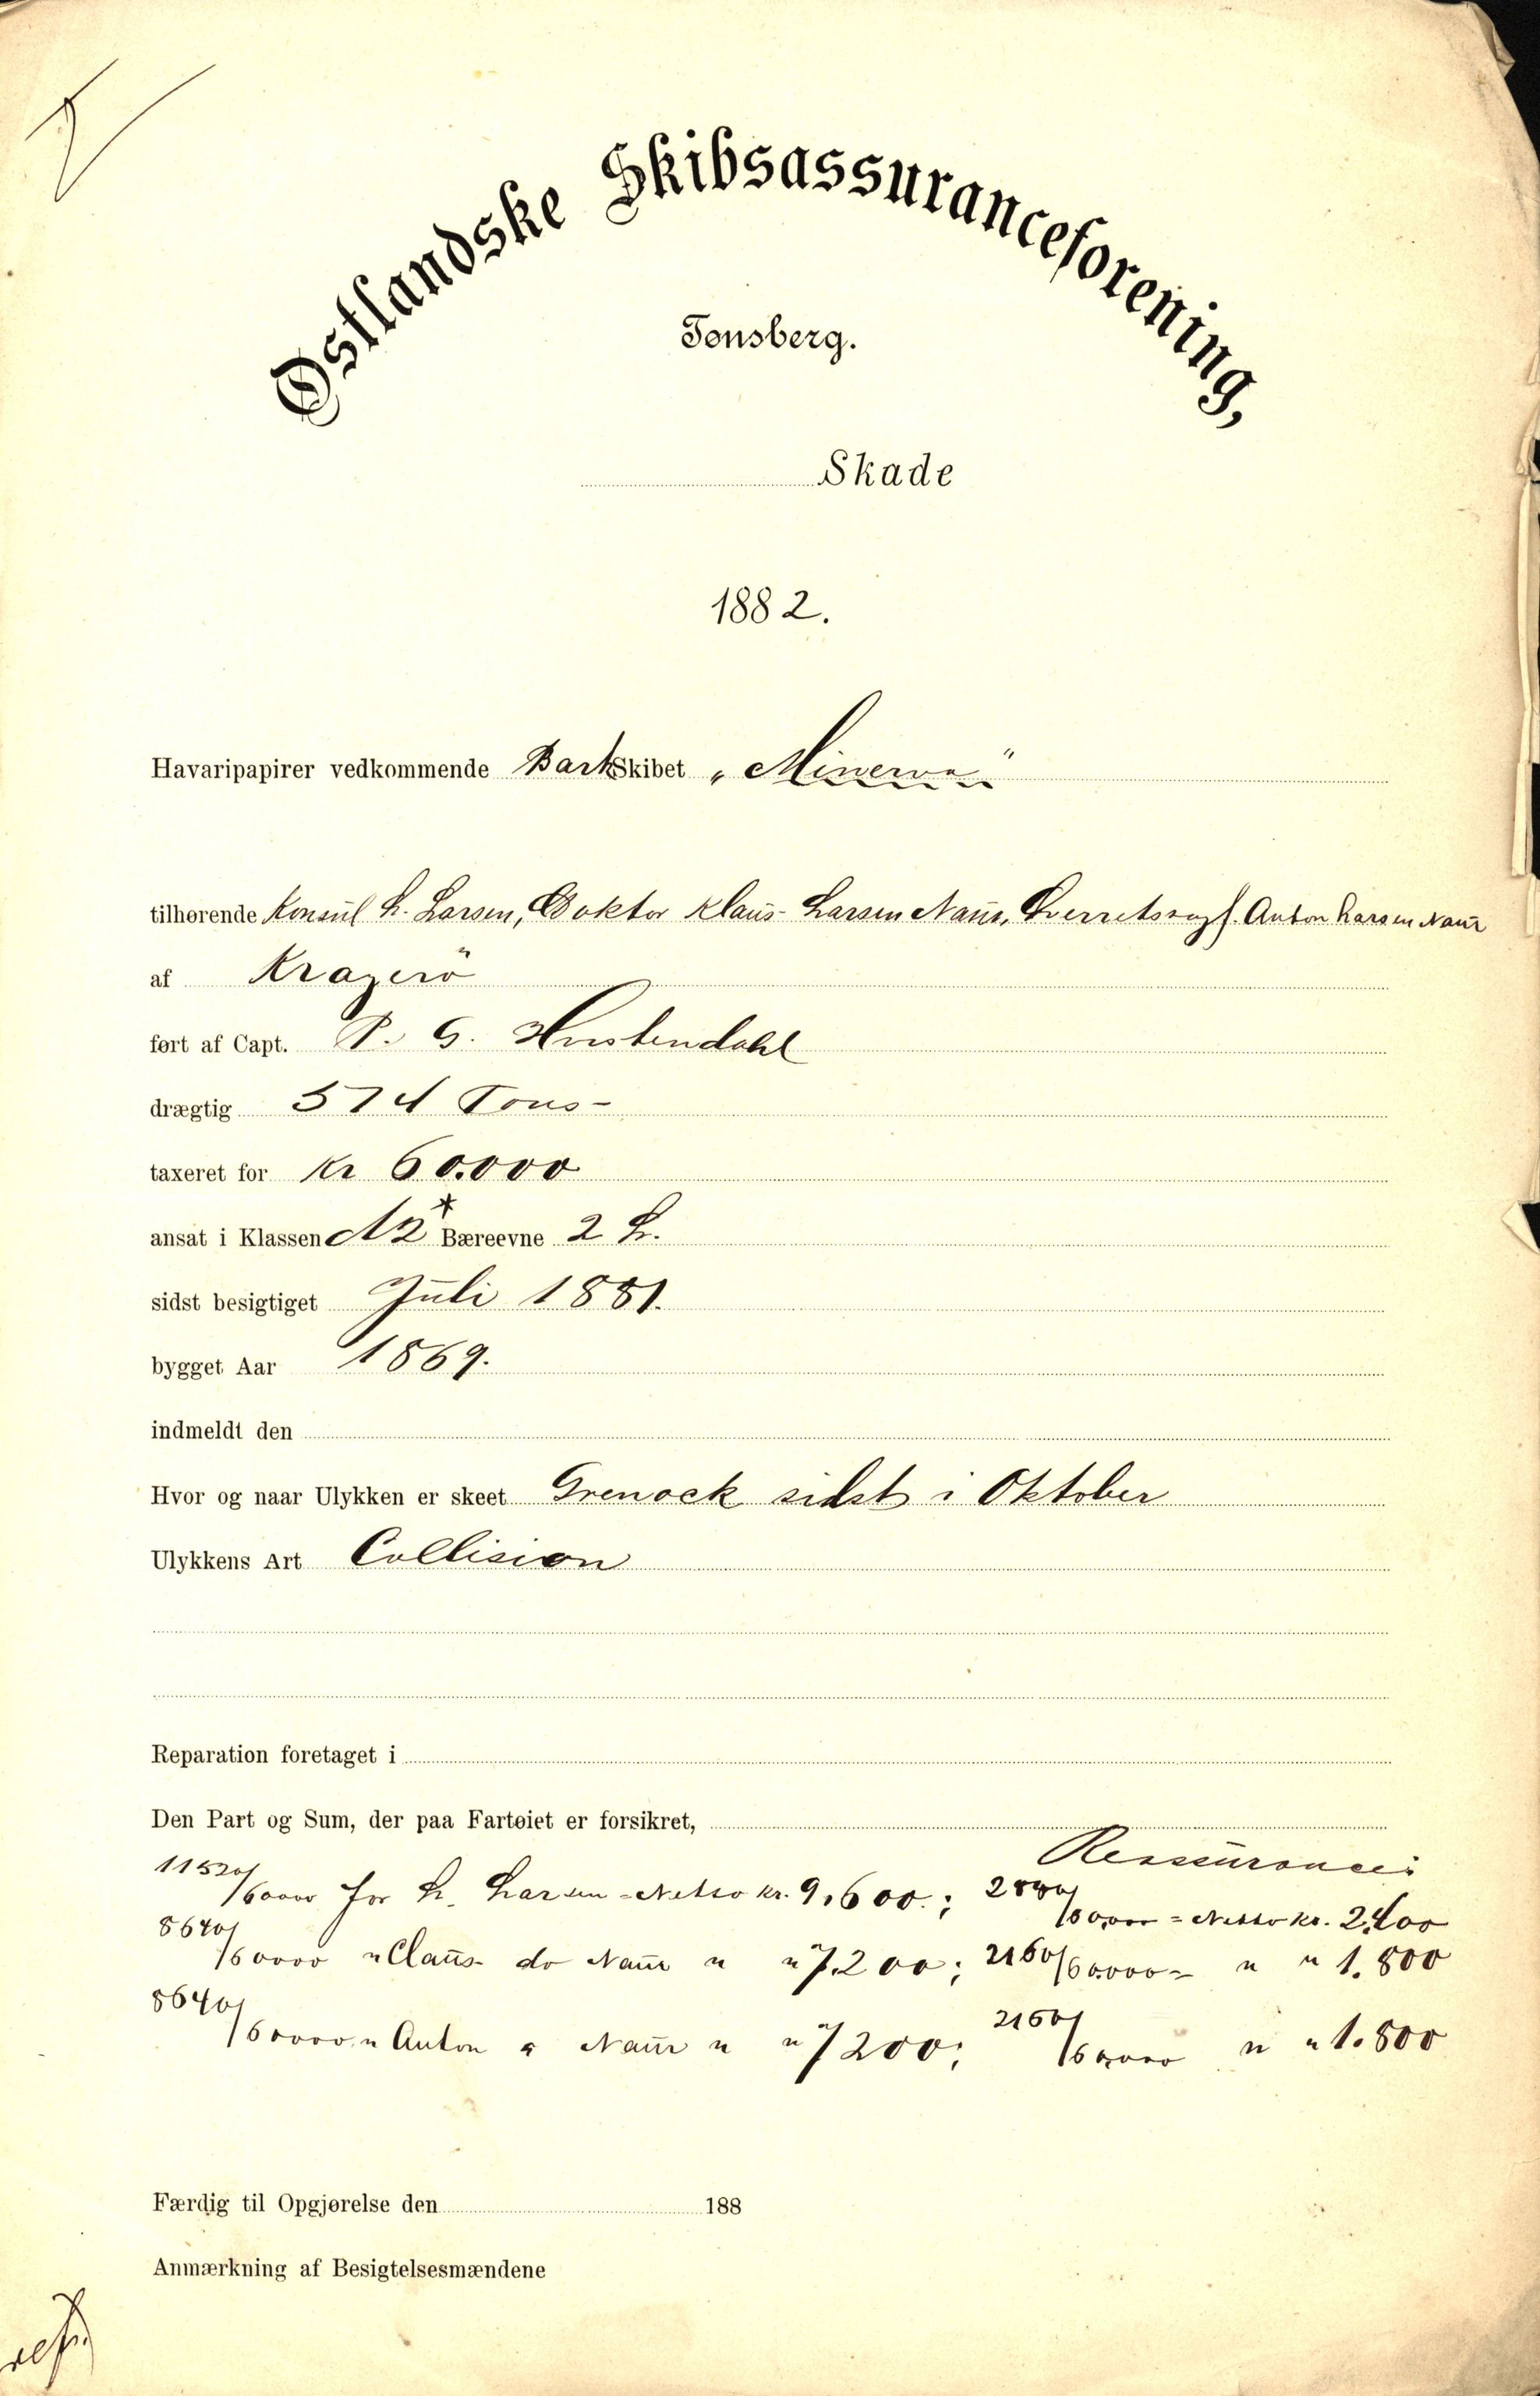 Østlandske Skibsassuranceforening,
Tønsberg.
Skade
1882.
Havaripapirer vedkommende Bark Skibet „Minerva"
tilhørende Konsul L. Larsen, Doktor Klaus Larsen Naur, Anton Larsen Naur
af Kragerö
ført af Capt. P. G.
drægtig 574 Tons
taxeret for Kr 60.000
ansat i Klassen A2* Bæreevne 2 L.
sidst besigtiget Juli 1881.
bygget Aar 1869.
indmeldt den
Hvor og naar Ulykken er skeet Grenock sidst i Oktober
Ulykkens Art Collision
Reparation foretaget i
Den Part og Sum, der paa Fartøiet er forsikret,
Reassurance:
11520/60000 for L. Larsen = Netto kr. 9,600.; 2880/60,000 = Netto kr. 2,400
8640/60000 " Claus do Naur " " 7.200; 2160/60.000 = " " 1.800
8640/60000 " Anton " Naur " " 7200; 2160/60,000 " " 1.800
Færdig til Opgjørelse den 188
Anmærkning af Besigtelsesmændene